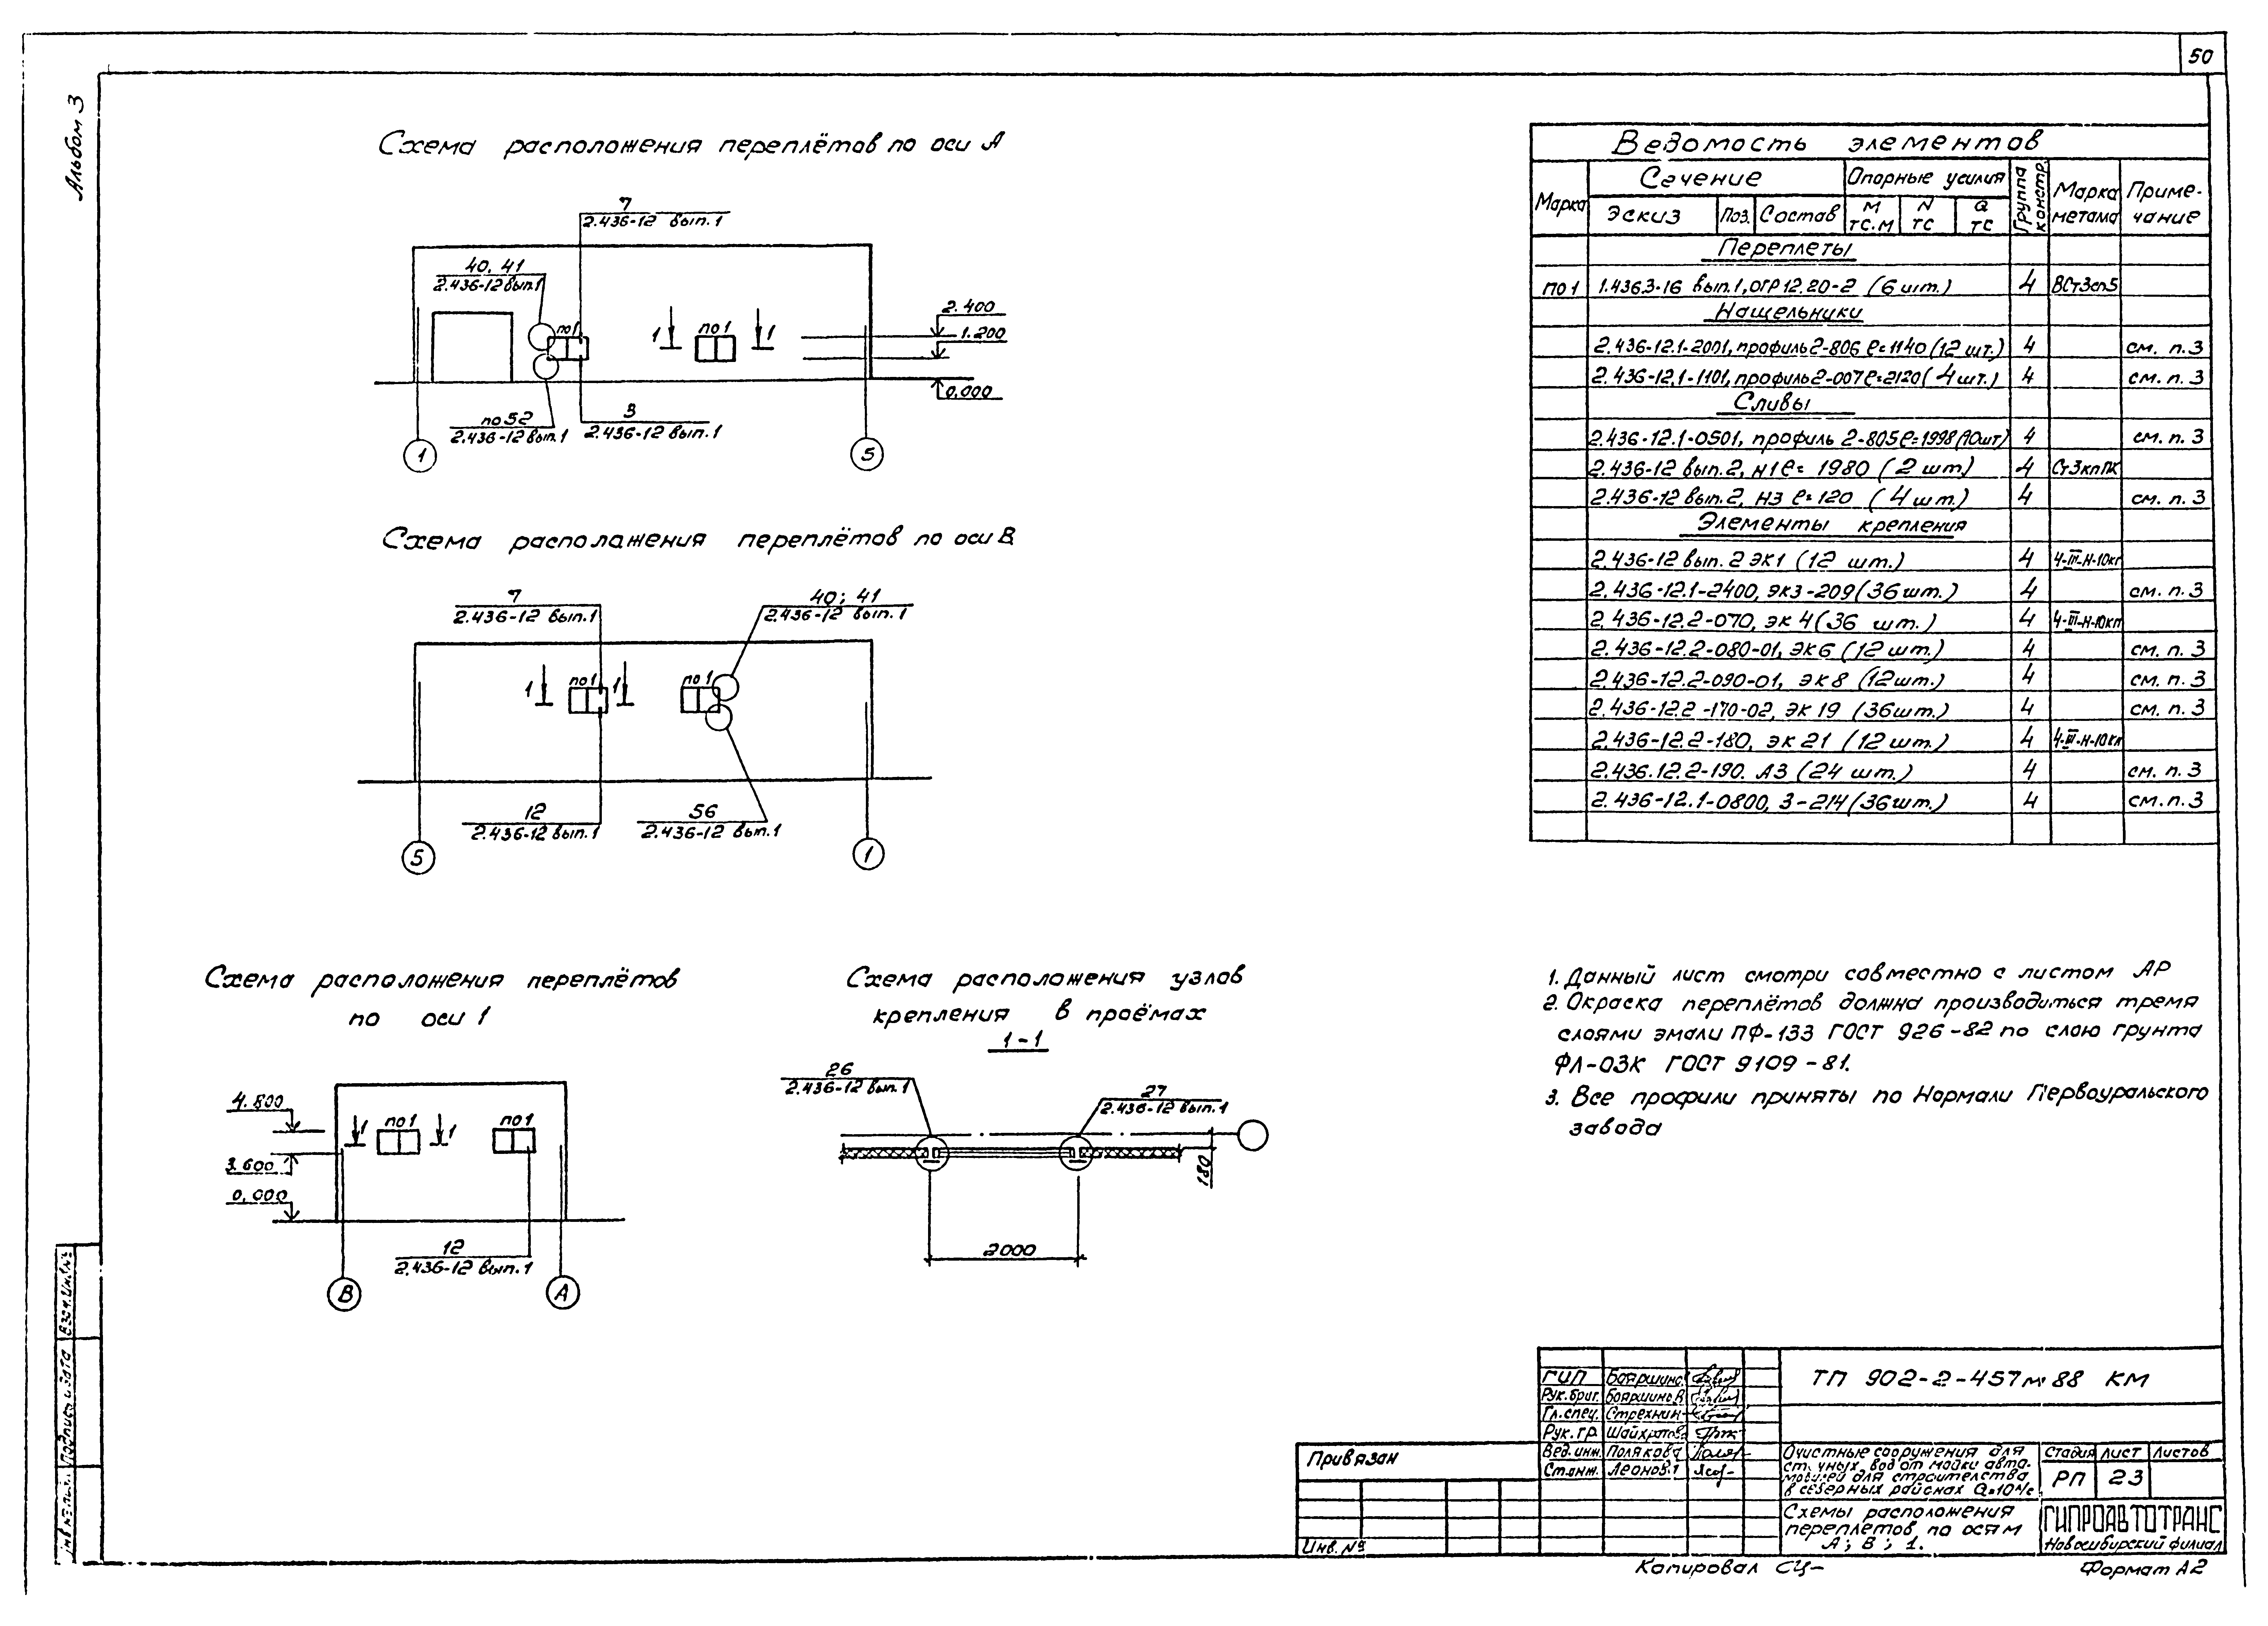 50
Альбом 3
Схема расположения переплётов по оси А
7
2.436-12 вып.1
40, 41
2.436-12 вып.1
по1
1
по1
1
2.400
1.200
0,000
по 52
2.436-12 вып.1
3
2.436-12 вып.1
1
5
Схема располажения переплётов по оси В
7
2.436-12 вып.1
40; 41
2.436-12 вып.1
1
по1
1
по1
12
2.436-12 вып.1
56
2.436-12 вып.1
5
1
Схема расположения переплётов
по оси 1
4.800
3.600
0,000
1
по1
1
по1
12
2.436-12 вып.1
В
А
Схема расположения узлов
крепления в проёмах
1-1
26
2.436-12 вып.1
27
2.436-12 вып.1
180
2000
Ведомость элементов
Марка
Сечение
Опорные усилия
Группа констр.
Марка метала
Приме-чание
Эскиз Поз. Состав М тс.м N тс Q тс
Переплеты
по1 1.436.3-16 вып.1, ОГР12.20-2 (6 шт.) 4 ВСт3сп5
Нащельники
2.436-12.1-2001, профиль 2-806 ℓ=1140 (12 шт.) 4 см. п. 3
2.436-12.1-1101, профиль 2-007 ℓ=2120 (4 шт.) 4 см. п. 3
Сливы
2.436-12.1-0501, профиль 2-805 ℓ=1998 (10 шт) 4 см. п. 3
2.436-12 вып.2, Н1 ℓ= 1980 (2 шт.) 4 Ст3кпПК
2.436-12 вып.2, Н3 ℓ=120 (4 шт.) 4 см. п. 3
Элементы крепления
2.436-12 вып. 2 ЭК1 (12 шт.) 4 4-III-Н-10кп
2.436-12.1-2400, ЭК3-209 (36 шт.) 4 см. п. 3
2.436-12.2-070, ЭК 4 (36 шт.) 4 4-III-Н-10кп
2.436-12.2-080-01, ЭК6 (12 шт.) 4 см. п. 3
2.436-12.2-090-01, ЭК 8 (12шт.) 4 см. п. 3
2.436-12.2-170-02, ЭК 19 (36шт.) 4 см. п. 3
2.436-12.2-180, ЭК 21 (12 шт.) 4 4-III-Н-10кп
2.436.12.2-190. А3 (24 шт.) 4 см. п. 3
2.436-12.1-0800, 3-214 (36шт.) 4 см. п. 3
1. Данный лист смотри совместно с листом АР
2. Окраска переплётов должна производиться тремя
слоями эмали ПФ-133 ГОСТ 926-82 по слою грунта
ФЛ-03К ГОСТ 9109-81.
3. Все профили приняты по Нормали Первоуральского
завода
Взам. инв.№
Подпись и дата
Инв.№ подл.
Привязан
Инв. №
ГИП Бояршино.
Рук. бриг. Бояршинов
Гл. спец. Стрехнин
Рук. гр.
Вед. инж. Полякова
Ст. инж. Леонов
ТП 902-2-457м.88 КМ
Очистные сооружения для
сточных вод от мойки авто-
мобилей для строителства
в северных районах Q=10 л/с
Стадия Лист Листов
РП 23
Схемы расположения
переплетов по осям
А; В; 1.
ГИПРОАВТОТРАНС
Новосибирский филиал
Копировал СЦ-
Формат А2